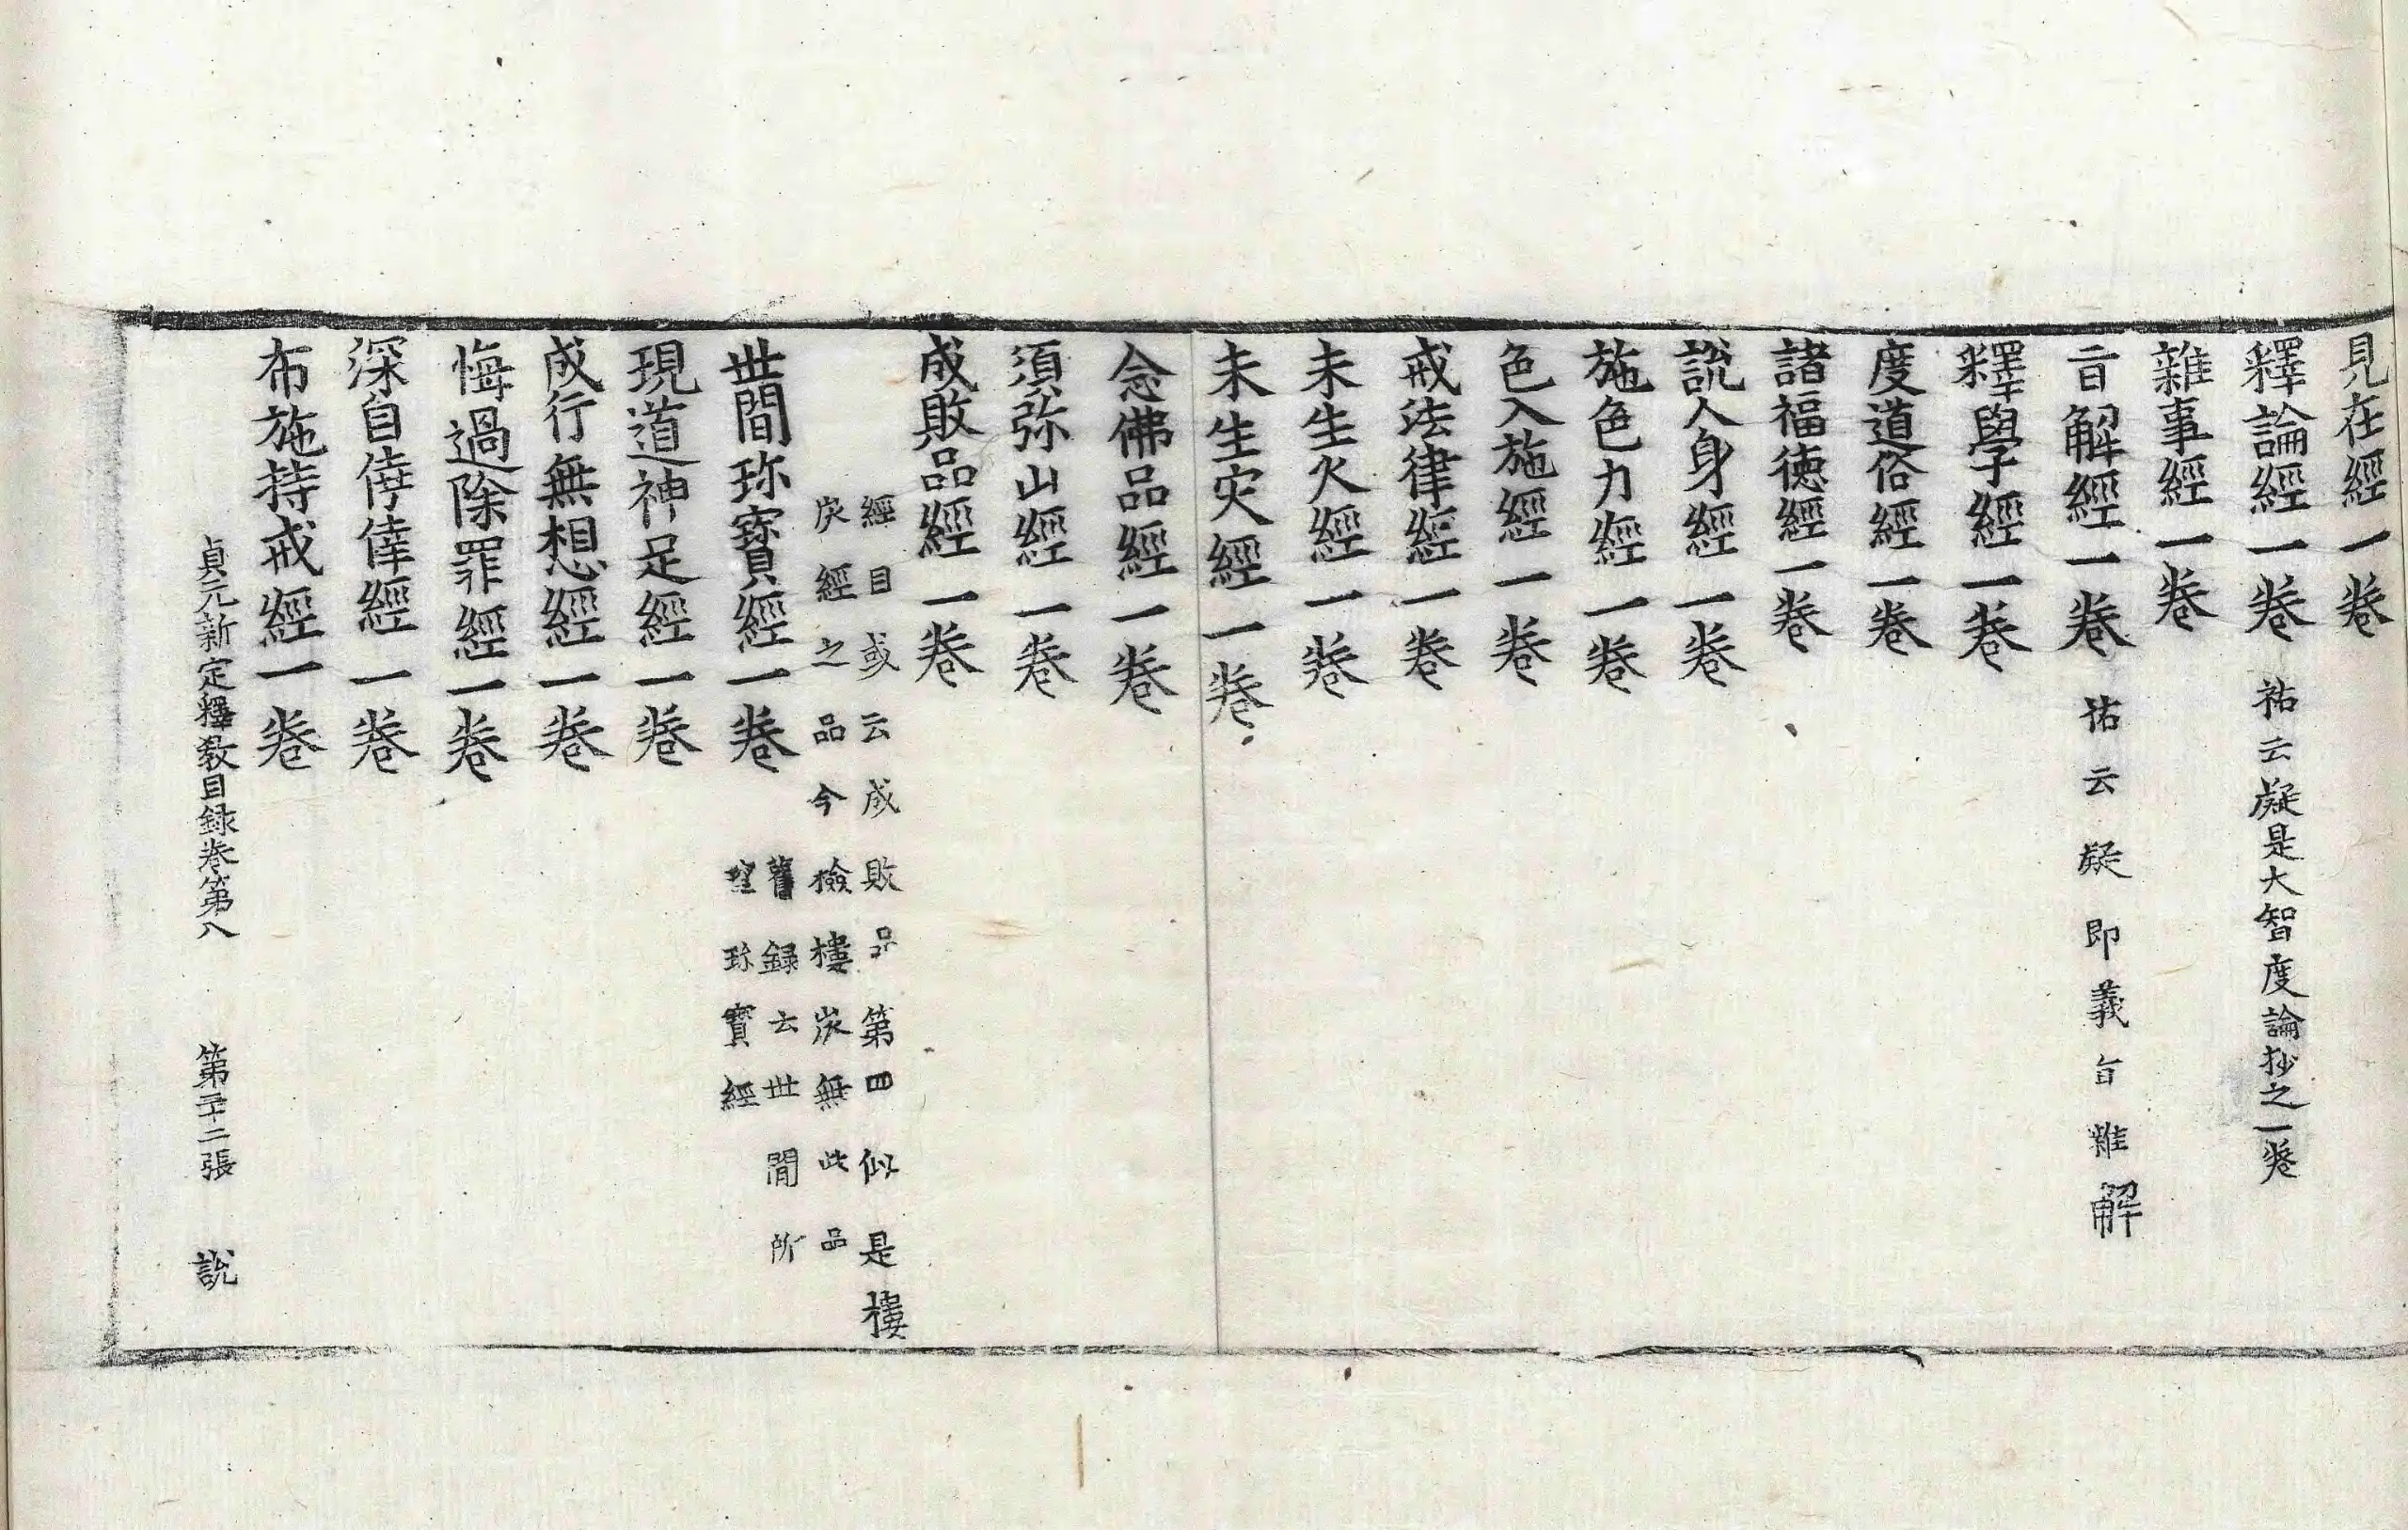 見在經一卷
釋論經一卷 祐云疑是大智度論抄之一卷
雜事經一卷
旨解經一卷 祐云疑即義旨雜解
釋學經一卷
度道俗經一卷
諸福德經一卷
說人身經一卷
施色力經一卷
色入施經一卷
戒法律經一卷
未生火經一卷
未生灾經一卷
念佛品經一卷
須弥山經一卷
成敗品經一卷
經目或云成敗品第四似是樓
炭經之品今檢樓炭無此品
世間珎寶經一卷 舊録云世間所
望珎寶經
現道神足經一卷
成行無想經一卷
悔過除罪經一卷
深自僥倖經一卷
布施持戒經一卷
貞元新定釋教目録卷第八 第三十二張 說